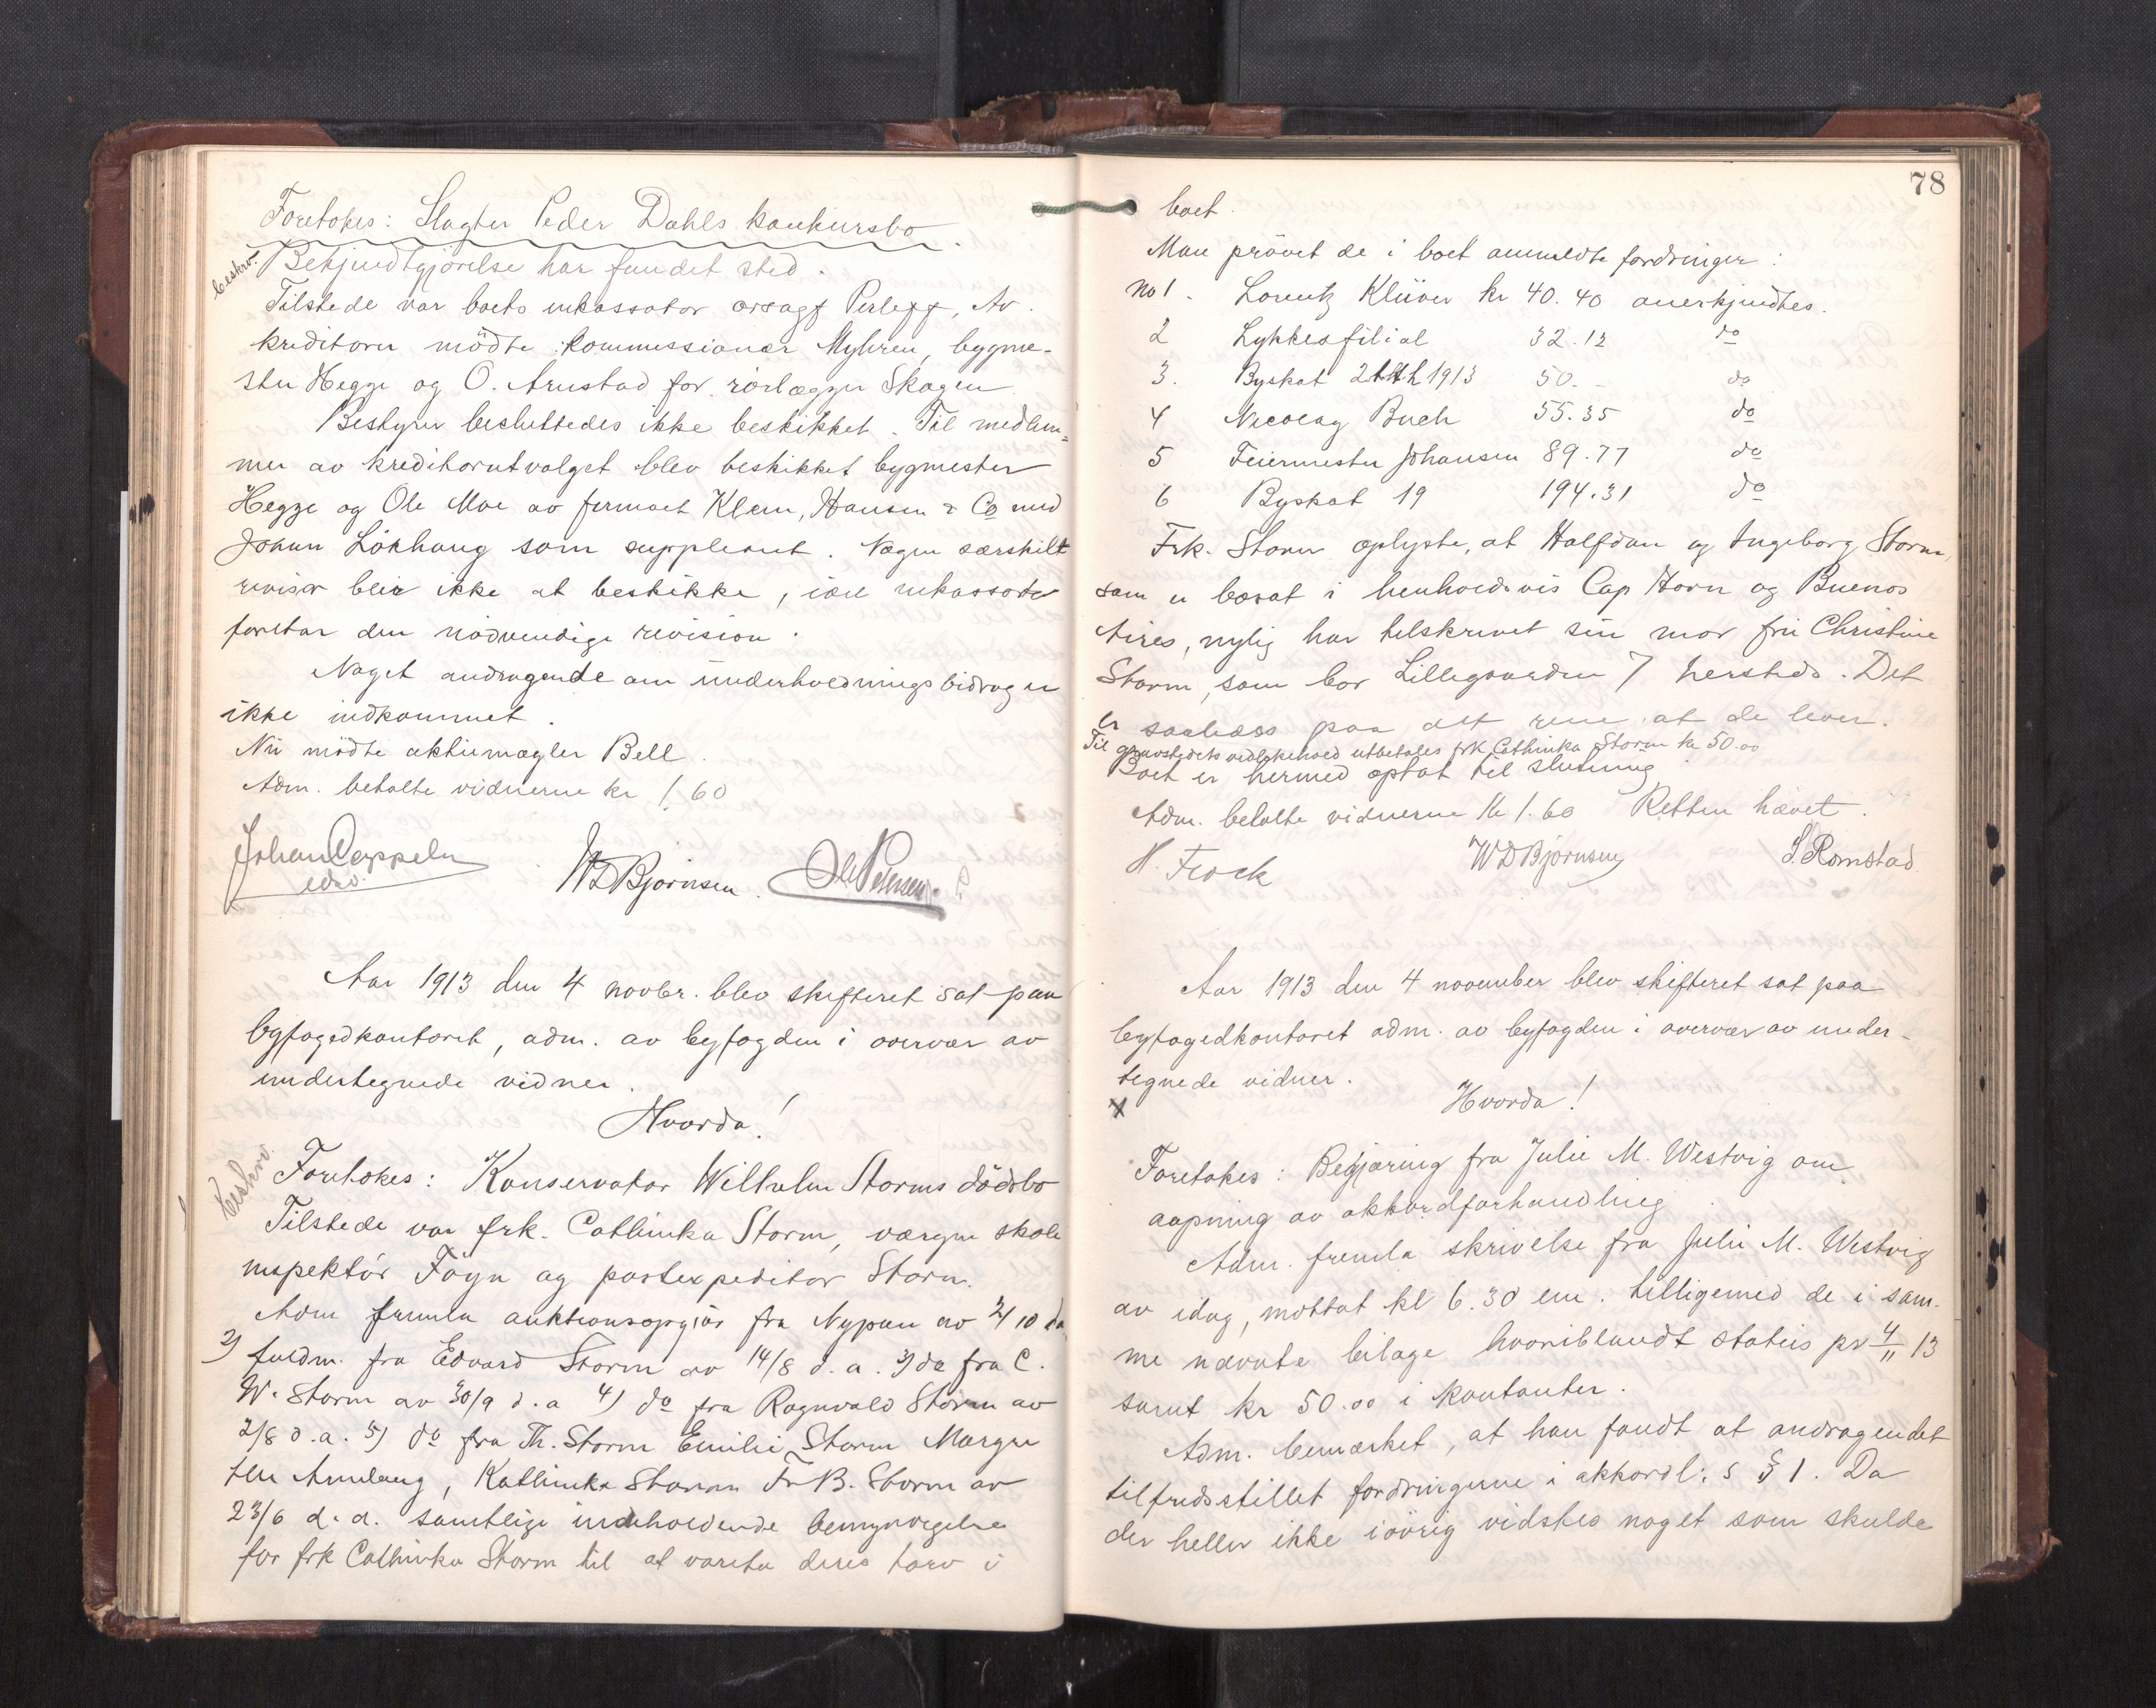 Foretokes: Slagter Peder Dahls konkursbo.
beskrv. Bekjendtgjörelse har fundet sted.
Tilstede var boets inkassator orsagf. Perleff, Av
kreditorer mödte kommissionær Myhren, bygme-
ster Hegge og O. Arnstad for rörlægger Skogen
Bestyrer besluttedes ikke beskikket. Til medlem=
mer av kreditorutvalget blev beskikket bygmester
Hegge og Ole Moe av firmaet Klem, Hansen & Co med
Johan Lökhaug som suppleant. Nogen særskilt
revisor blir ikke at beskikke, idet inkassator
foretar den nödvendige revision.
Noget andragende om underholdningsbidrag er
ikke indkommet.
Nu mödte aktiemægler Bell.
Adm. betalte vidnerne kr 1,60
Johan Cappelen
edsv.
WD Bjørnsen. Ole Petersen.
Aar 1913 den 4 novbr. blev skifteret sat paa
byfogedkontoret, adm. av byfogden i overvær av
undertegnede vidner.
Hvorda!
beskrv.
Foretokes: Konservator Wilhelm Storms dödsbo
Tilstede var frk. Cathinka Storm, værgen skole
inspektör Föyn og postexpeditör Storm.
Adm fremla auktionsopgjör fra Nypan av 2/10 da
2) fuldm. fra Edvard Storm av 14/8 d.a. 3) do fra C.
W. Storm av 30/9 d.a 4) do fra Ragnvald Storm av
2/8 d.a. 5) do fra Th. Storm Emilie Storm Margre
the Amlaug, Kathinka Storm Fr B. Storm av
23/6 d.a. samtlige indeholdende bemyndigelse
for frk Cathinka Storm til at vareta deres tarv i
78
boet.
Man prövet de i boet anmeldte fordringer:
No 1. Lorentz Klüver kr 40.40 anerkjendtes.
2 Lykkesfilial 32.12 do
3. Byskat 2 1913 50.- do
4 Nicolay Buch 55.35 do
5 Feiermester Johansen 89.77 do
6 Byskat 19 194.31 do
Frk. Storm oplyste, at Halfdan og Ingeborg Storm,
som er bosat i henholdsvis Cap Horn og Buenos
Aires, nylig har tilskrevet sin mor fru Christine
Storm, som bor Lillegaarden 7 hersteds. Det
er saaledes paa det rene at de lever.
Til gravstedets vedlikehold utbetales frk Cathinka Storm kr 50.00
Boet er hermed optat til slutning
Adm. betalte vidnerne kr 1.60 Retten hævet.
H. Frock WD Bjørnsen S. Romstad
Aar 1913 den 4 november blev skifteret sat paa
byfogedkontoret adm. av byfogden i overvær av under-
tegnede vidner.
Hvorda!
Foretokes: Begjæring fra Julie M. Westvig om
aapning av akkordforhandling
Adm. fremla skrivelse fra Julie M. Westvig
av idag, mottat kl 6.30 em. tilligemed de i sam-
me nævnte bilage hvoriblandt status pr 4/11 13
samt kr 50.00 i kontanter.
Adm. bemærket, at han fandt at andragendet
tilfredsstillet fordringerne i akkordl:s § 1. Da
der heller ikke iövrig vidstes noget som skulde